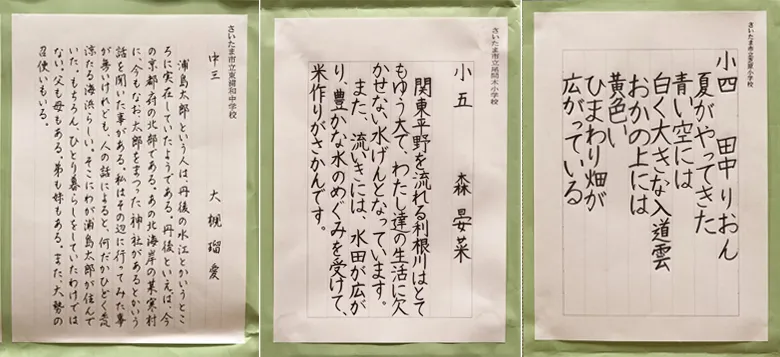 さいたま市立東浦和中学校
中三　大槻瑠愛
浦島太郎という人は丹後の水江とかいうとこ
ろに実在していたようである。丹後といえば、今
の京都府の北部である。あの北海岸の某寒村
に、今もなお、太郎をまつった神社があるとかいう
話を聞いた事がある。私はその辺に行ってみた事
が無いけれども、人の話によると、何だかひどく荒
涼たる海浜らしい。そこにわが浦島太郎が住んで
いた。もちろん、ひとり暮らしをしていたわけでは
ない。父も母もある。弟も妹もある。また大勢の
召使いもいる。
さいたま市立尾間木小学校
小五　森晏菜
関東平野を流れる利根川はとて
もゆう大で、わたし達の生活に欠
かせない水げんとなっています。
また、流いきには、水田が広が
り、豊かな水のめぐみを受けて、
米作りがさかんです。
さいたま市立芝原小学校
小四　田中りおん
夏がやってきた
青い空には
白く大きな入道雲
おかの上には
黄色い
ひまわり畑が
広がっている